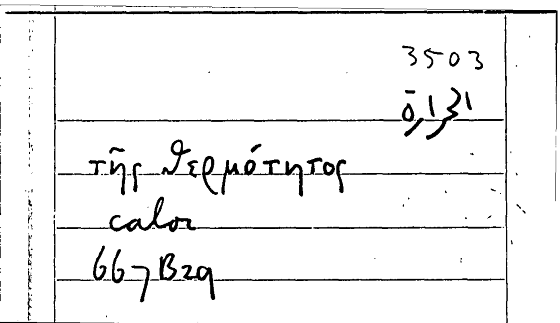 3503
τῆς θερμότητος
calor
667 B29